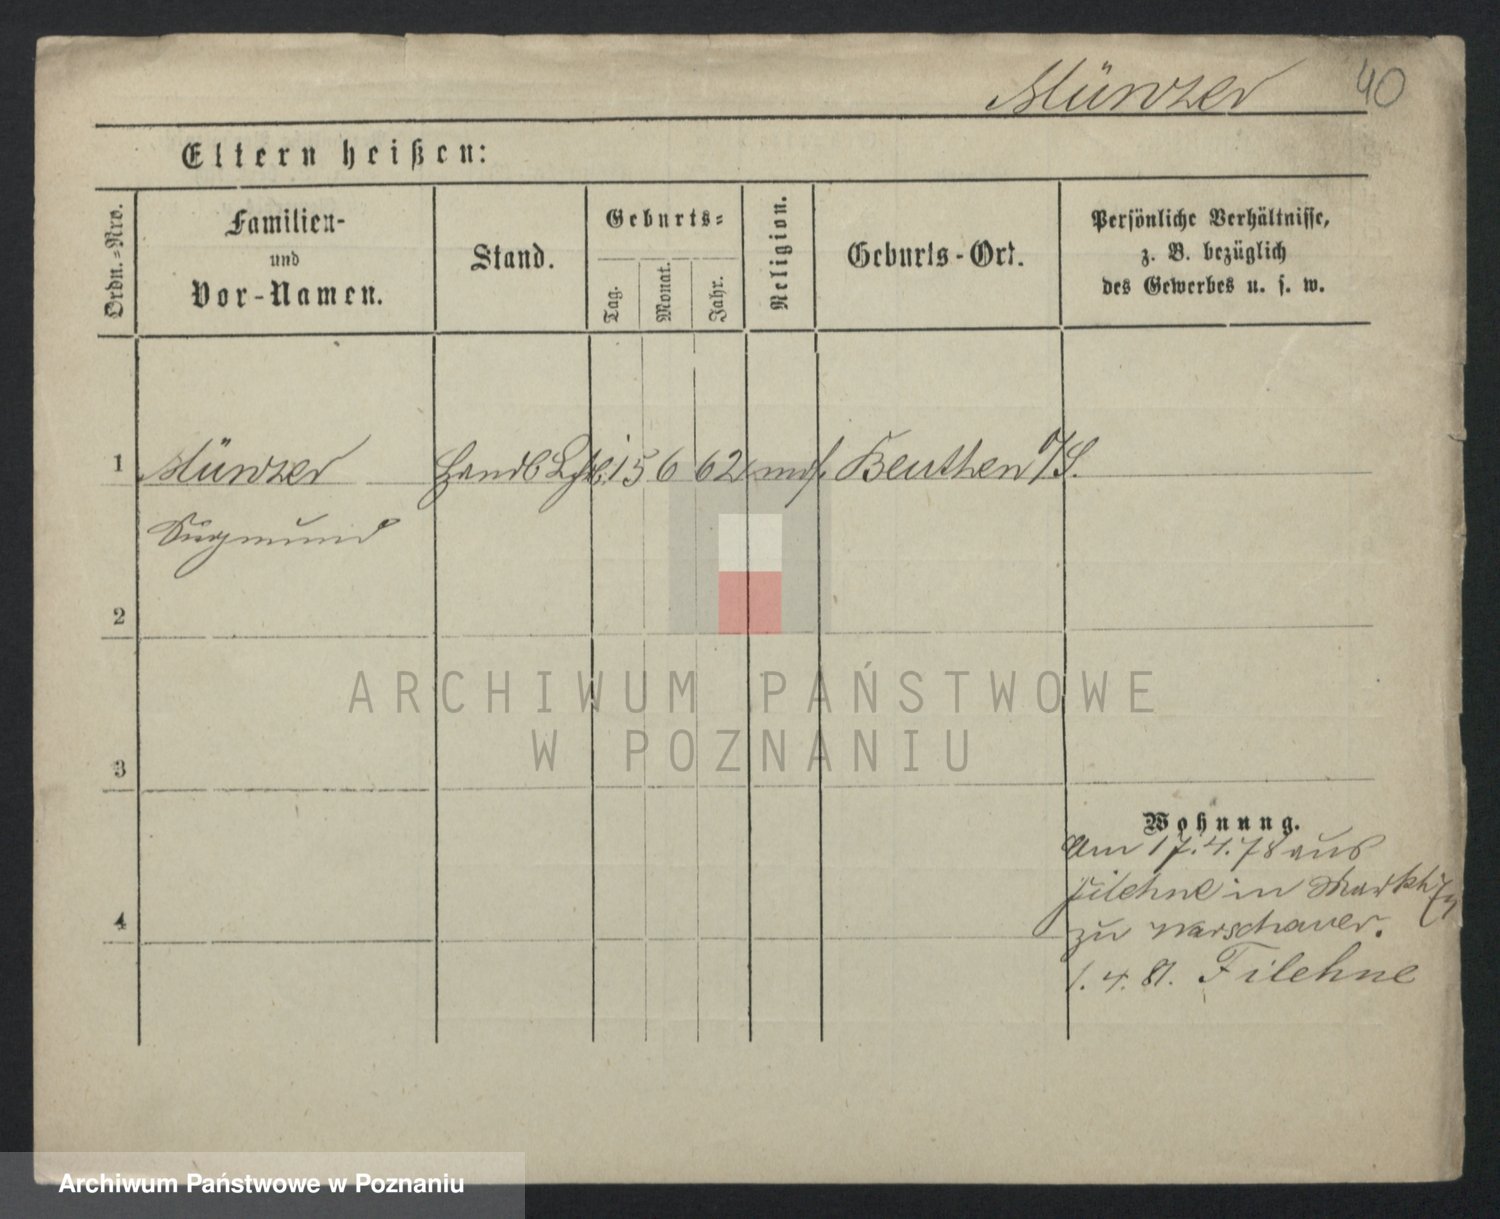 Münzer 40
Eltern heißen:
Ordn.-Nro.
Familien-
und
Vor-Namen.
Stand.
Geburts-
Tag.
Monat.
Jahr.
Religion.
Geburts-Ort.
Persönliche Verhältnisse,
z. B. bezüglich
des Gewerbes u. s. w.
1 Münzer 15 6 62 mos. Beuthen O/S.
Sigmund
2
ARCHIWUM PAŃSTWOWE
W POZNANIU
3
Wohnung.
Am 17.4.78 aus
Filehne in Markt
zu Warschauer.
4
1. 4. 81. Filehne
Archiwum Państwowe w Poznaniu